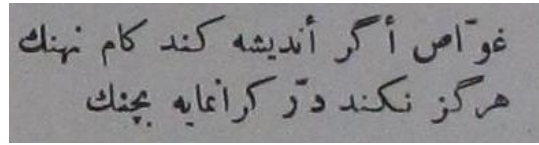 غوّاص أگر أندیشه کند کام نهنك
هرگز نکند درّ کرانمایه بچنك